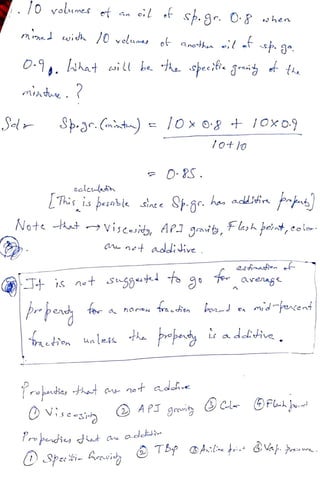 . 10 volumes of an oil of sp.gr. 0.8 when
mixed with 10 volumes of another oil of sp. gr.
0.9. What will be the specific gravity of the
mixture. ?
Soln Sp.gr. (mixture) = 10 x 0.8 + 10 x 0.9
10+10
= 0.85.
calculation
[This is possible since Sp.gr. has additive property]
Note that → Viscosity, API gravity, Flash point, color
are not additive.
estimation of
It is not suggested to go for average
property for a narrow fraction based on mid-percent
fraction unless the property is additive.
Properties that are not additive
① Viscosity ② API gravity ③ Color ④ Flash point
Properties that are additive
① Specific Gravity ② TBP ③ Aniline point ④ Vap. pressure.